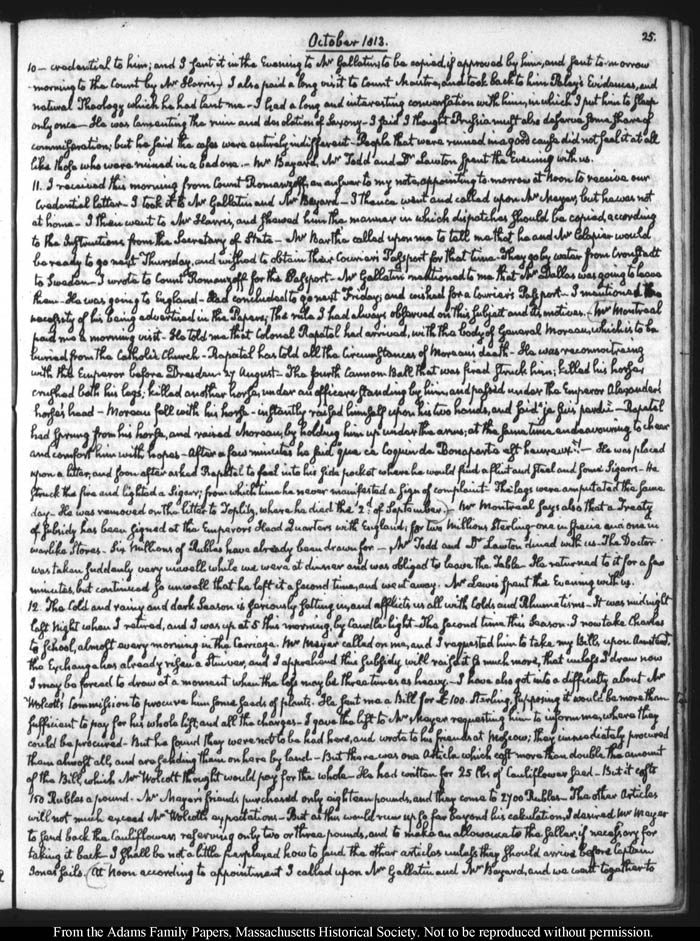 October 1813.
25.
10 – credential to him; and I sent it in the Evening to Mr Gallatin, to be copied if approved by him, and sent to-morrow
morning to the Count by Mr Harris) I also paid a long visit to Count Maistre, and took back to him Paley's Evidences, and
natural Theology which he had lent me – I had a long and interesting conversation with him, in which I put him to sleep
only once – He was lamenting the ruin and desolation of Saxony – I said I thought Prussia must also deserve some share of
commiseration; but he said the cases were entirely indifferent – People that were ruined in a good cause did not feel it at all
like those who were ruined in a bad one. – Mr Bayard, Mr Todd and Dr Lawton spent the Evening with us.
11. I received this morning from Count Romanzoff, an answer to my note, appointing to-morrow at Noon to receive our
Credential Letter – I took it to Mr Gallatin and Mr Bayard – I thence went and called upon Mr Meyer, but he was not
at home – I then went to Mr Harris, and shewed him the manner in which dispatches should be copied, according
to the Instructions from the Secretary of State – Mr Barthe called upon me to tell me that he and Mr would
be ready to go next Thursday, and wished to obtain their Courier's Passport for that time – They go by water from Cronstadt
to Sweden – I wrote to Count Romanzoff for the Passport – Mr Gallatin mentioned to me that Mr Dallas was going to leave
them – He was going to England – Had concluded to go next Friday; and wished for a Courier's Passport – I mentioned the
necessity of his being advertised in the Papers; the rule I had always observed on this subject and its motives. – Mr Montreal
paid me a morning visit – He told me that Colonel Rapatel had arrived, with the body of General Moreau, which is to be
buried from the Catholic Church – Rapatel has told all the Circumstances of Moreau's death – He was reconnoitring
with the Emperor before Dresden 27 August – The fourth Cannon Ball that was fired struck him; killed his horse,
crushed both his legs; killed another horse, under an officer standing by him, and passed under the Emperor Alexander's
horse's head – Moreau fell with his horse – instantly raised himself upon his two hands, and said "je suis perdu" – Rapatel
had sprung from his horse, and raised Moreau, by holding him up under the arms; at the same time endeavouring to cheer
and comfort him with hopes – After a few minutes he said que ce coquin de Bonaparte est heureux"! – He was placed
upon a litter, and soon after asked Rapatel to feel into his side pocket where he would find a flint and steel and some Sigars – He
struck the fire and lighted a Sigarr; from which time he never manifested a sign of complaint – The legs were amputated the same
day – He was removed on the litter to Toplitz, where he died the 2d of September. – Mr Montreal says also that a Treaty
of Subsidy has been signed at the Emperor's Head Quarters with England; for two Millions Sterling – one in Specie and one in
warlike Stores – Six Millions of Rubles have already been drawn for – Mr Todd and Dr Lawton dined with us – The Doctor
was taken suddenly very unwell while we were at dinner and was obliged to leave the Table – He returned to it for a few
minutes but continued so unwell that he left it a second time, and went away. Mr Lewis spent the Evening with us.
12. The Cold and rainy and dark Season is seriously setting us, and afflicts us all with Colds and Rhumatisms – It was midnight
last Night when I retired, and I was up at 5 this morning, by Candle-light – The second time this Season – I now take Charles
to School, almost every morning in the Carriage. Mr Meyer called on me, and I requested him to take my Bill, upon Amsterdam,
the Exchange has already risen a Stiver, and I apprehend this Subsidy will raise it so much more, that unless I draw now
I may be forced to draw at a moment when the loss may be three times as heavy – I have also got into a difficulty about Mr
Wolcott's Commission to procure him some seeds of plants. He sent me a Bill for £100. Sterling, supposing it would be more than
sufficient to pay for his whole list, and all the charges – I gave the list to Mr Meyer requesting him to inform me, where they
could be procured – But he found they were not to be had here, and wrote to his friends at Moscow; they immediately procured
them almost all, and are sending them on here by land – But there was one Article which cost more than double the amount
of the Bill, which Mr Wolcott thought would pay for the whole – He had written for 25 lbs of Cauliflower seed – But it costs
150 Rubles a pound – Mr Meyer's friends purchased only eighteen pounds, and they come to 2700 Rubles – The other Articles
will not much exceed Mr Wolcott's expectations – But as this would run up so far beyond his calculation, I desired Mr Meyer
to send back the Cauliflower, reserving only two or three pounds, and to make an allowance to the seller, if necessary for
taking it back – I shall be not a little perplexed how to send the other articles unless they should arrive before Captain
Jones sails. (At Noon according to appointment I called upon Mr Gallatin and Mr Bayard, and we went together to
From the Adams Family Papers, Massachusetts Historical Society. Not to be reproduced without permission.